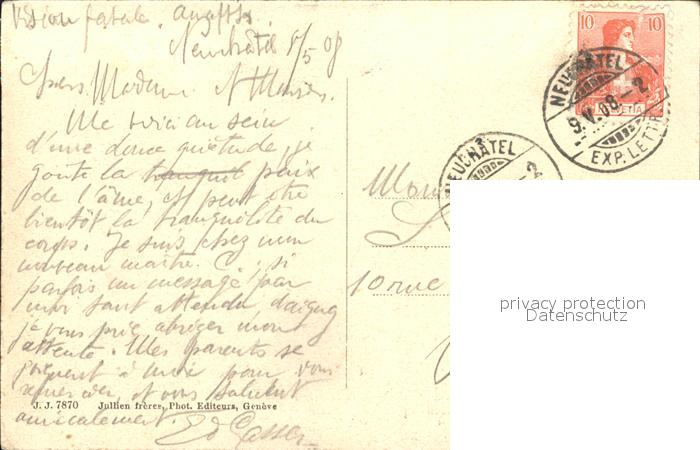 Vision fatale.
Neuchâtel 8/5 08
Chers Madame
Me voici au sein
d'une douce quiétude, je
goûte la tranquil paix
de l'âme, et peut être
bientôt la tranquilité du
corps. Je suis chez mon
nouveau maître. si
parfois un message par
moi sont attendu
je vous prie abréger mon
attente. Mes parents se
joignent à moi pour vous
remercier, et vous saluent
amicalement. Ed Gasser
J. J. 7870 Jullien frères, Phot. Editeurs, Genève
10 10
HELVETIA
NEUCHÂTEL
9.V.08-2
EXP. LETTR.
NEUCHÂTEL
-2
10 rue
privacy protection
Datenschutz